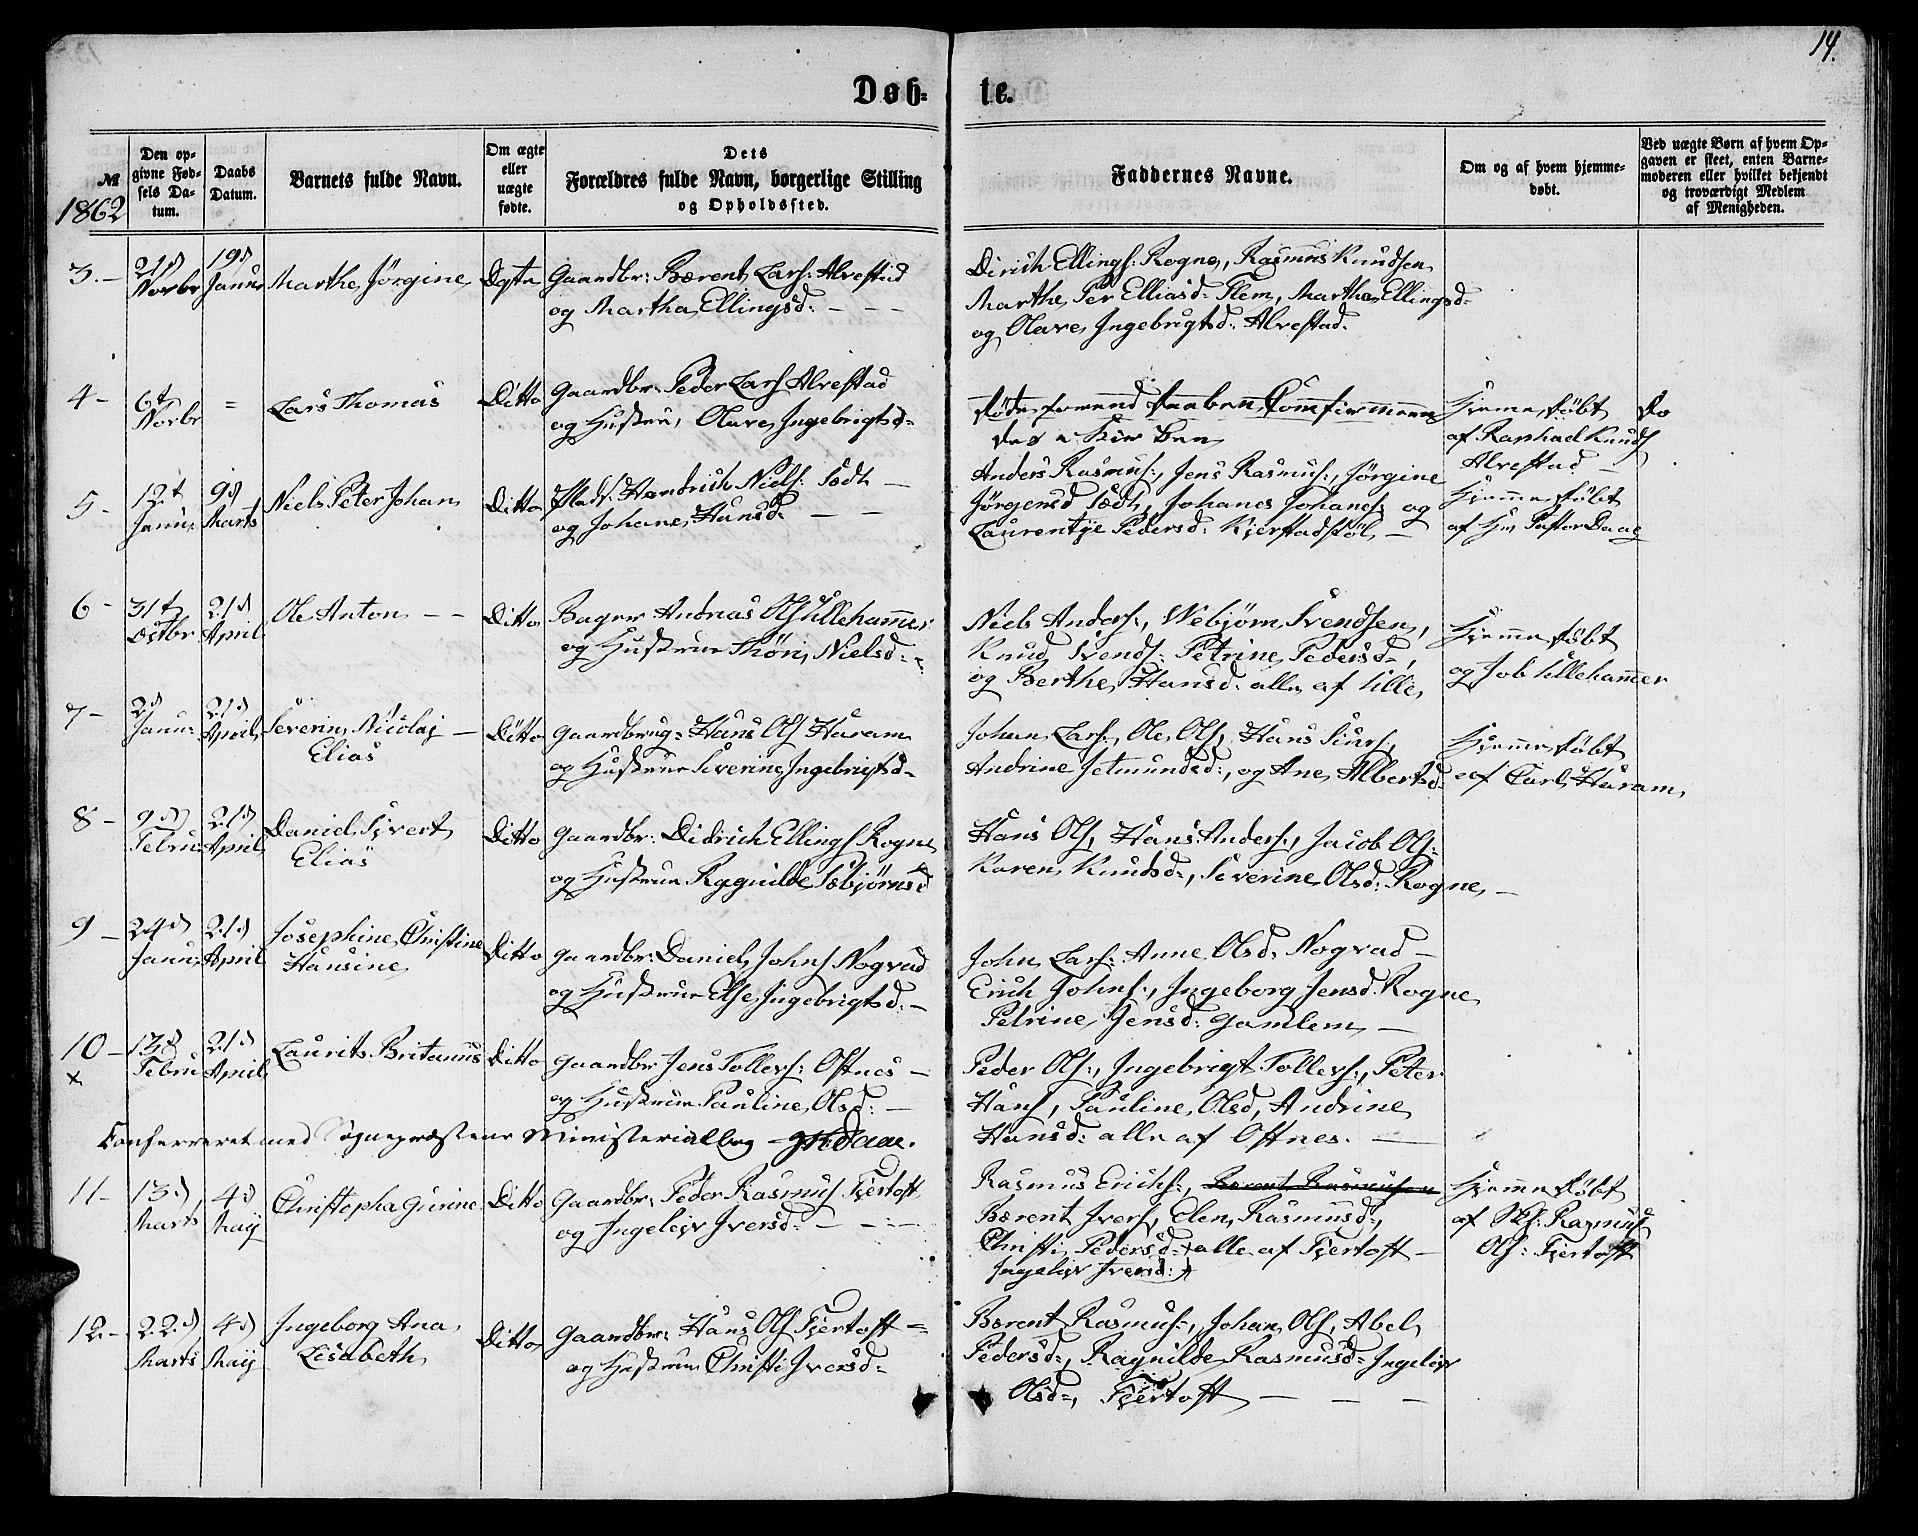 14.
Døb-
te.
№
1862
Den op-
givne Fød-
sels Da-
tum.
Daabs
Datum.
Barnets fulde Navn.
Om ægte
eller
uægte
fødte.
Dets
Forældres fulde Navn, borgerlige Stilling
og Opholdssted.
Faddernes Navne.
Om og af hvem hjemme-
døbt.
Ved uægte Børn af hvem Op-
gaven er skeet, enten Barne-
moderen eller hvilket bekjendt
og troværdigt Medlem
af Menigheden.
3.-
21de
Novbr
19de
Janur
Marthe Jørgine
Ægte
Gaardbr: Bærent Lars: Alvestad
og Martha Ellingsd:
Didrich Ellings: Rogne, Rasmus Knudsen
Marthe Per Elliasd: Flem, Marthe Ellingsd-
og Olave Ingebrigtsd: Alvestad.
4-
6t
Novbr
=
Lars Thomas
Ditto
Gaardbr: Peder Lars Alvestad
og Hustru, Olave Ingebrigtsd-
Hjemmedøbt
af Raphael Knuds
Alvestad -
5-
12t
Janur
9de
Marts
Niels Peter Johan
Ditto
Plads: Hendrich Niels:
og Johane Hansd-
Anders Rasmus:, Jens Rasmus:, Jørgine
Jørgensd Johanes Johanes: og
Laurentje Pedersd: Kjerstadstøl -
Hjemmedøbt
af Hr Pastor Daae
6-
31t
Octbr
21de
April
Ole Anton - -
Ditto
Andreas Ols Ullehammer
og Hustrue Nielsd:
Niels Anders:, Webjørn Svendsen,
Knud Svends: Petrine Pedersd-,
og Berthe Hansd: alle af Ulle,
Hjemmedøbt
og Job Ullehammer
7-
2d
Janur
21de
April
Severin Nicolaj -
Elias
Ditto
Gaardbrug: Hans Ols Haram
og Hustrue Severine Ingebrigtsd-
Johan Lars:, Ole Ols, Hans
Andrine Setmundsd:, og Ane Albertsd-
Hjemmedøbt
af Carl Haram
8-
9de
Febru
21de
April
Daniel Sivert
Elias
Ditto
Gaardbr: Didrich Ellings Rogne
og Hustrue Ragnilde Sæbjørnsd
Hans Ols, Hans Anders:, Jacob Ols:
Karen Knudsd-, Severine Olsd: Rogne -
9-
24de
Janur
21de
April
Josephine Christine
Hansine
Ditto
Gaardbr: Daniel Johns Nogvad
og Hustrue Else Ingebrigtsd. -
John Lars: Anne Olsd. Nogvad -
Erich Johns:, Ingeborg Jensd. Rogne
Petrine Jensd: Gamlem -
10-
x
13d
Febru
21de
April
Laurits Britanus
Ditto
Gaardbr Jens Tollevs: Oftnes -
og Hustrue Pauline Olsd: -
Peder Ols:, Ingebrigt Tollevs:, Peter
Hans, Pauline Olsd, Andrine
Hansd: alle af Oftnes. -
Confereret med Sognepræstens Ministerialbog - Daae.
11-
13de
Marts
4de
Maij
Christopha Gurine
Ditto
Gaardbr: Peder Rasmus Fjertoft
og Ingeleiv Iversd: - -
Rasmus Erichs:, Berent Rasmusen
Bærent Ivers, Elen Rasmusd:,
Christi Pedersd: + alle af Fjertoft -
Ingeleiv Iversd: +
Hjemmedøbt
af Rasmus
Ols: Fjertoft
12-
22de
Marts
4de
Maij
Ingeborg Ana
Lisabeth
Ditto
Gaardbr: Hans Ols Fjertoft -
og Hustrue Christi Iversd-
Bærent Rasmus:, Johan Ols, Abel
Pedersd:, Ragnilde Rasmusd- Ingeleiv
Olsd-, Fjertoft - - -